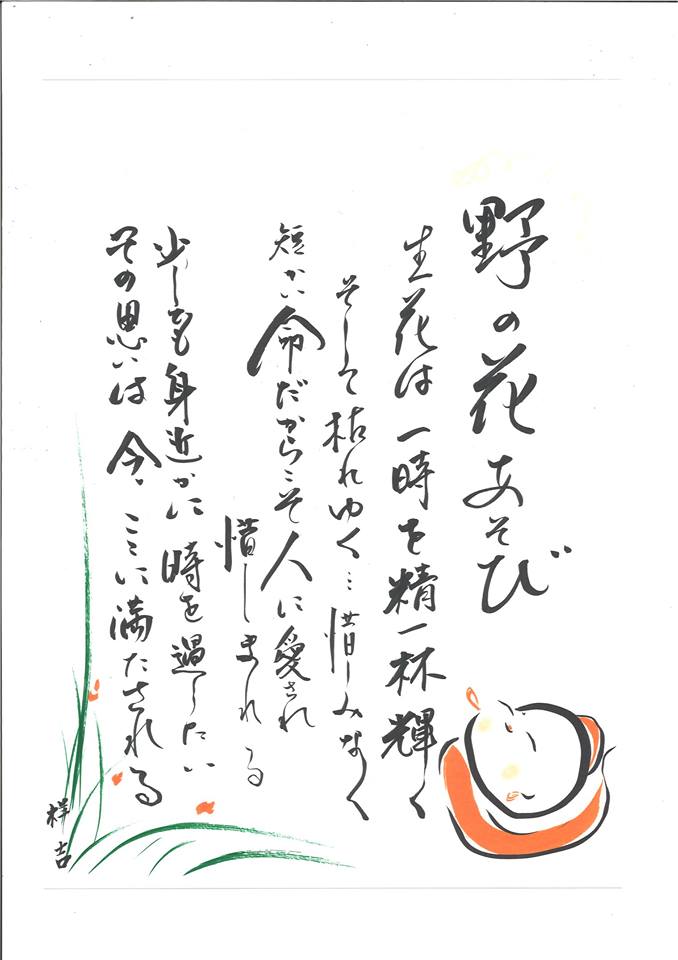 野の花あそび
生花は一時を精一杯輝く
そして枯れゆく…惜しみなく
短かい命だからこそ人に愛され
惜しまれる
少しでも身近かに時を過したい
その思いは今、ここに満たされる
祥吉